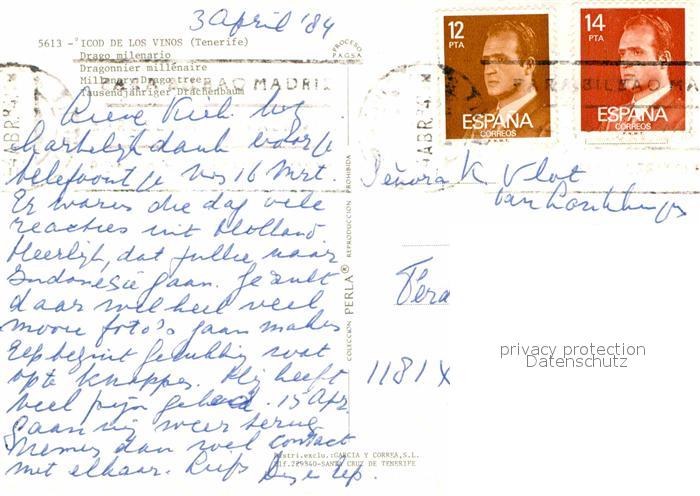 3 April '84
5613 - ICOD DE LOS VINOS (Tenerife)
Drago milenario
Dragonnier millénaire
Millenary Dragotree
Tausendjähriger Drachenbaum
PROCESO
PAGSA
12
PTA
ESPAÑA
CORREOS
F.N.M.T.
14
PTA
ESPAÑA
CORREOS
F.N.M.T.
PARA BILBAO MADRID
ABR.
Lieve
hartelijk dank voor je
telefoontje 16 Mrt.
Er waren die dag vele
reacties uit Holland.
Heerlijk, dat jullie naar
Indonesië gaan. Je zult
daar wel heel veel
mooie foto's gaan maken
Eep begint gelukkig wat
op te knappen. Hij heeft
veel pijn gehad. 15 Apr.
gaan wij weer terug.
Nemen dan wel contact
met elkaar. Liefs en Eep.
COLECCION PERLA® REPRODUCCION PROHIBIDA
Distri.exclu.: GARCIA Y CORREA,S.L.
Tlf.229840-SANTA CRUZ DE TENERIFE
Señora K. Vlot
van
1181 X
privacy protection
Datenschutz